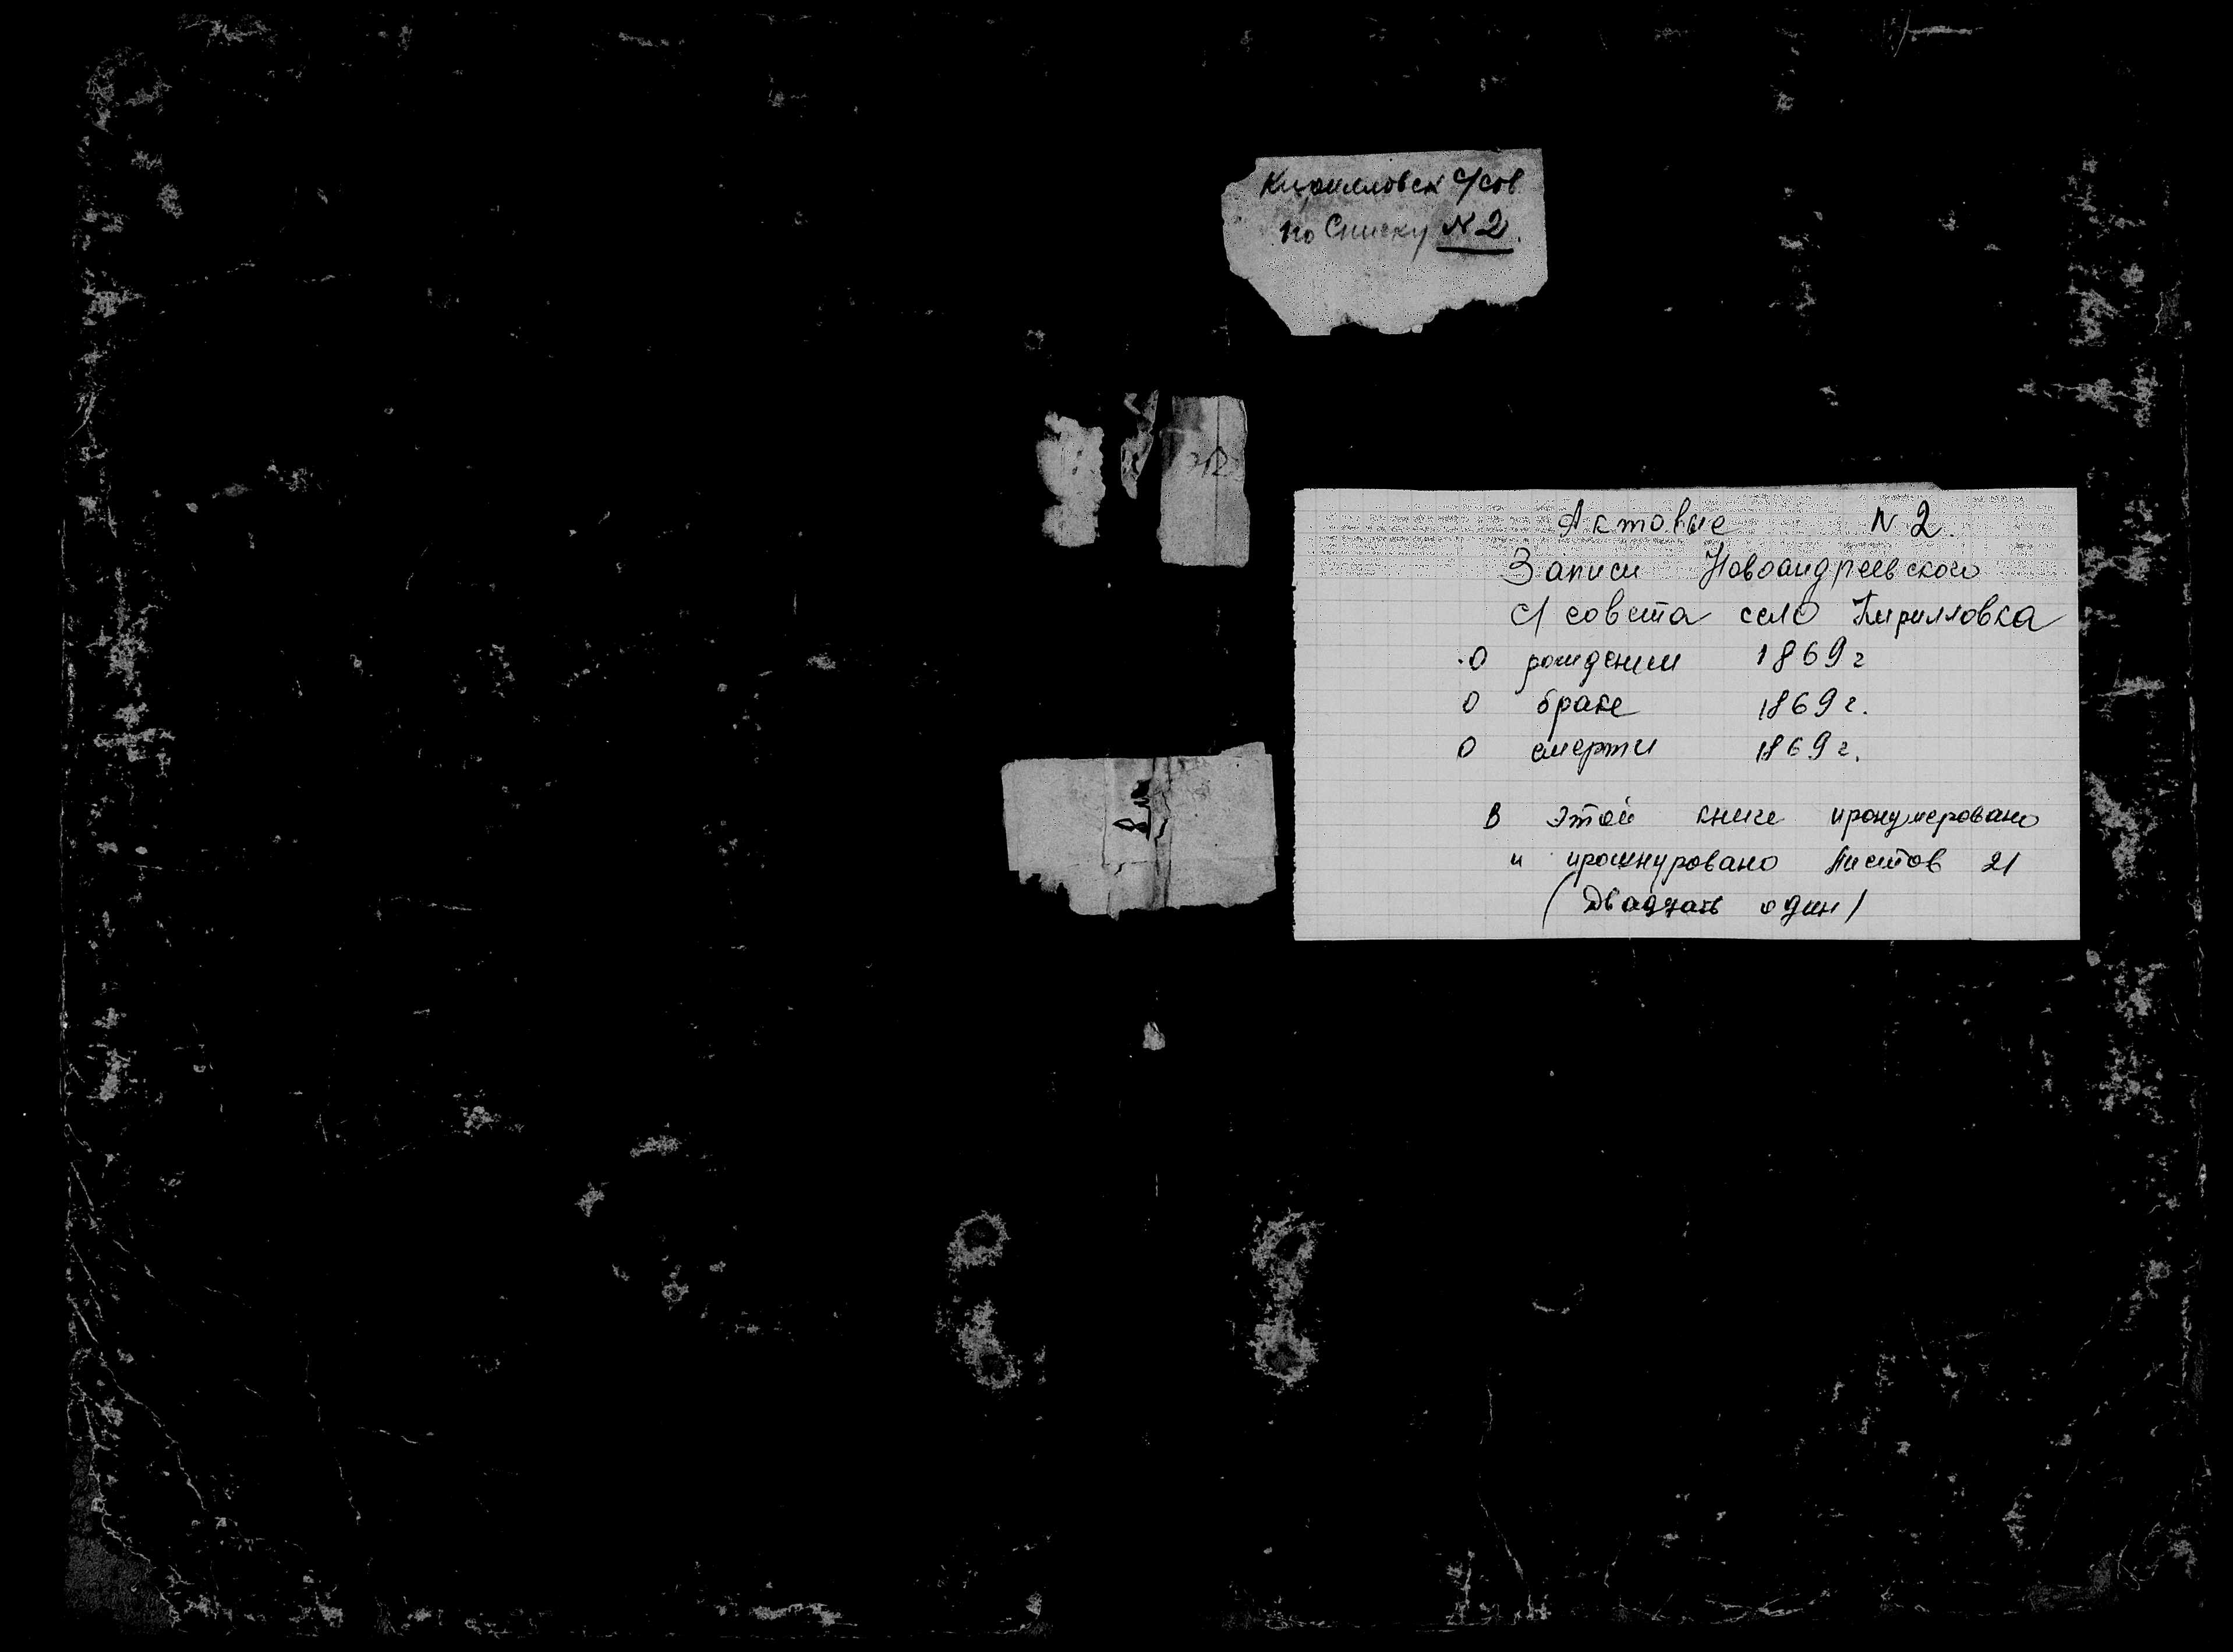 Кирилловск с/сов
по Списку N 2.
Актовые N 2.
Записи Новоандреевского
с/совета село Кирилловка
О рождении 1869 г
О браке 1869 г.
О смерти 1869 г.
В этой книге пронумеровано
и прошнуровано листов 21
(двадцать один)